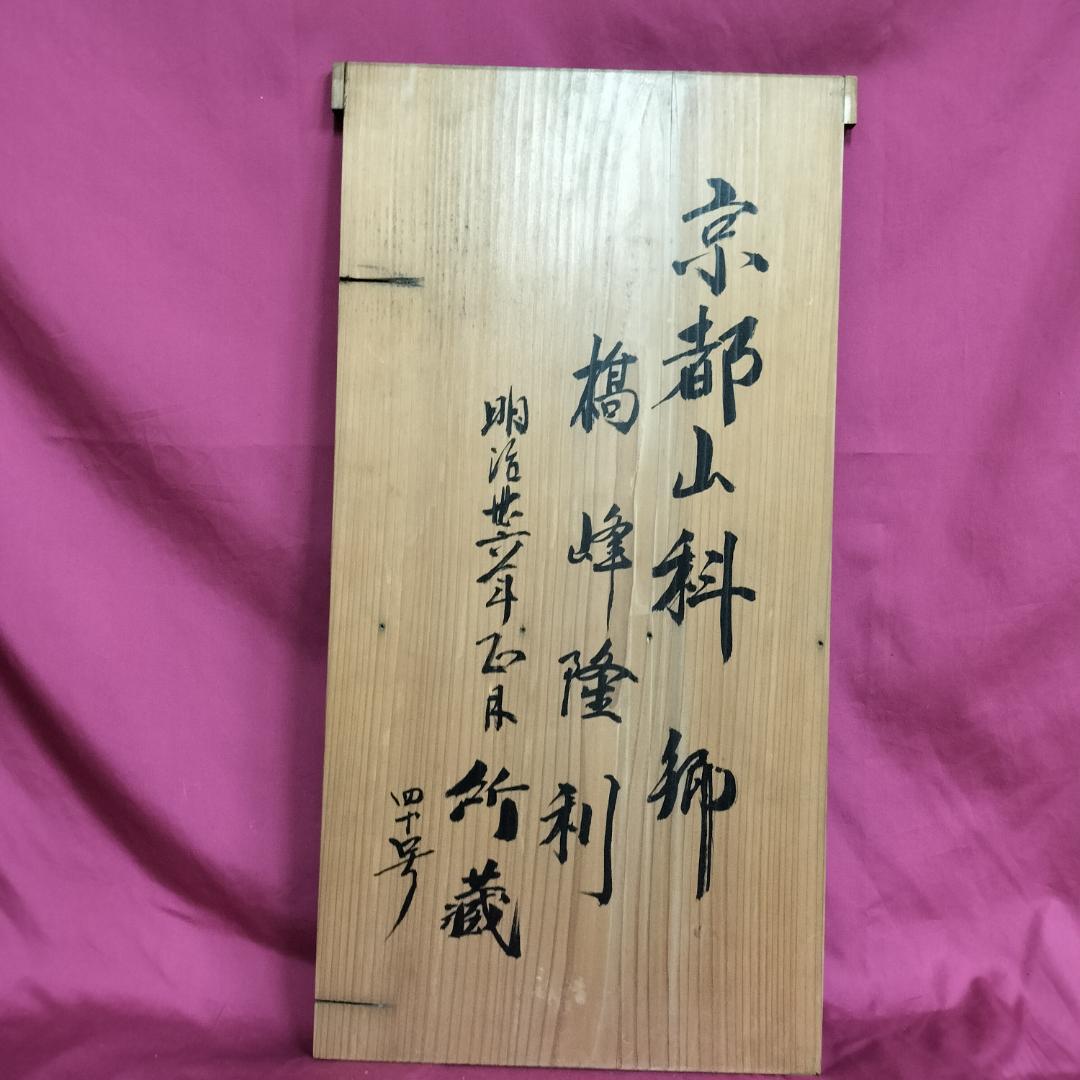 京都山科郷
橋峰隆利
明治廿六年正月
所蔵
四十号